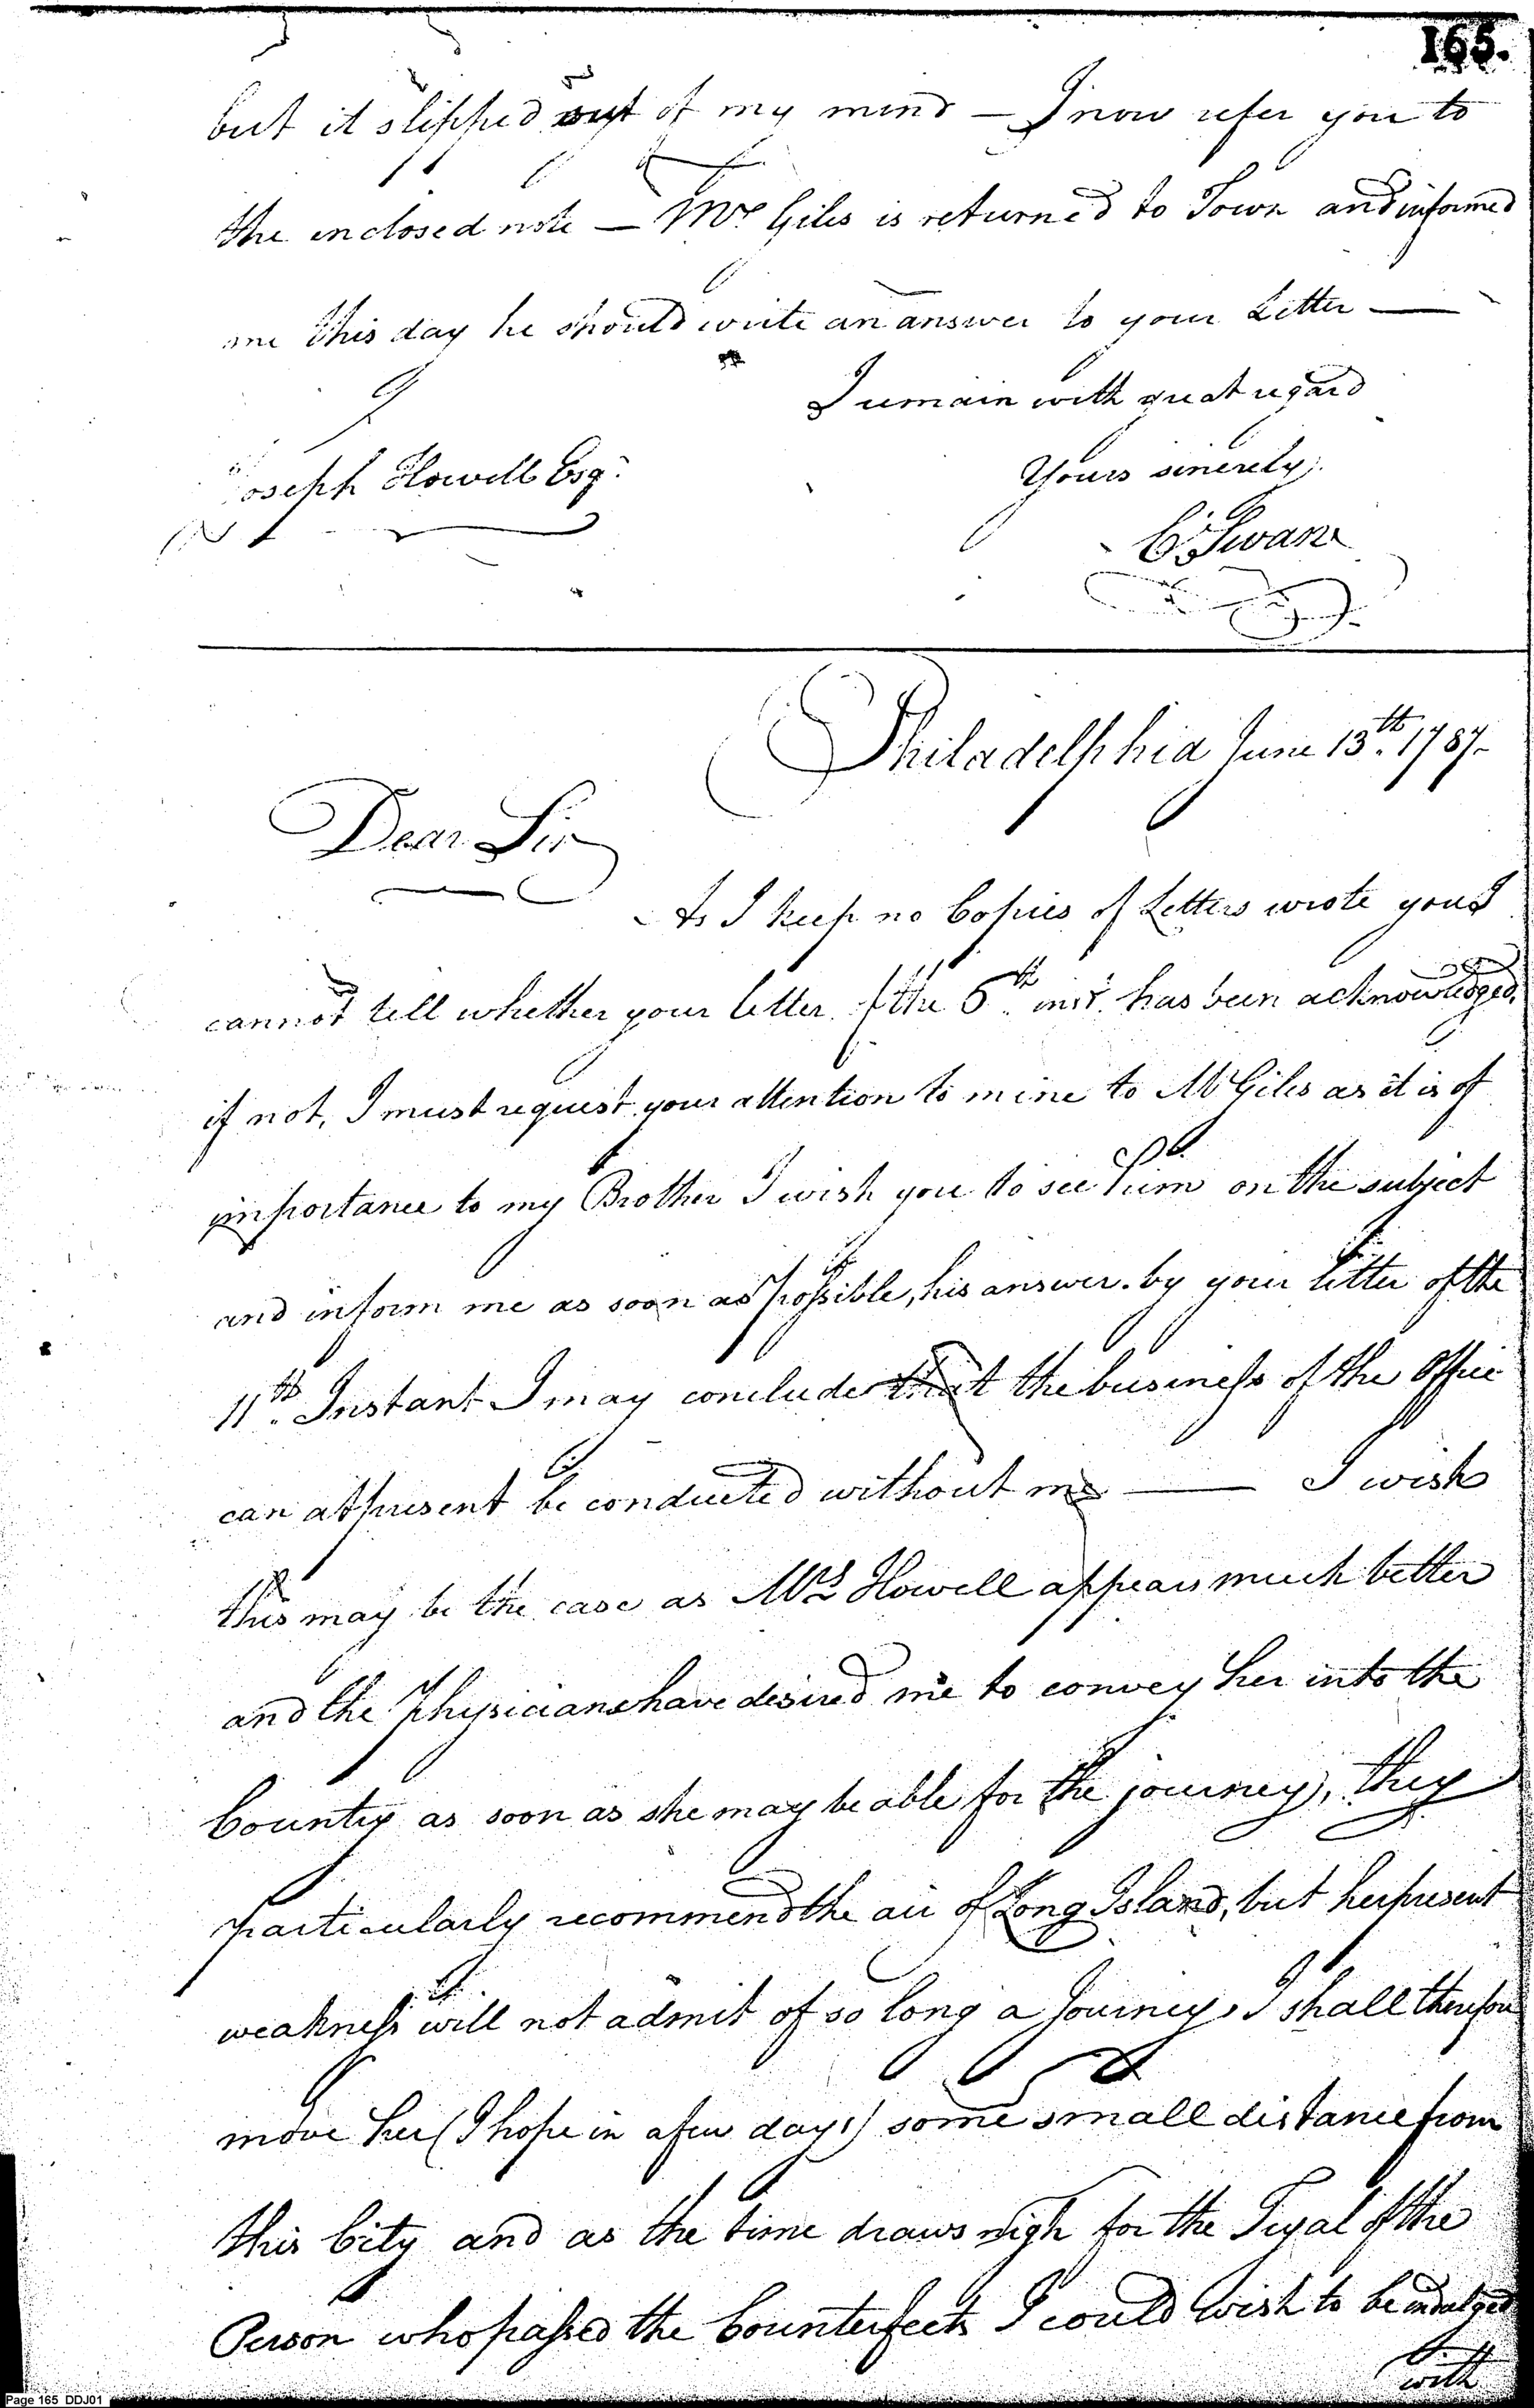 165.
but it slipped out of my mind — I now refer you to
the enclosed note — Mr Giles is returned to Town and informed
me this day he should write an answer to your Letter —
I remain with great regard
Joseph Howell Esqr.
Yours sincerely,
C. Swan
Philadelphia June 13th. 1787.
Dear Sir
As I keep no Copies of Letters wrote you I
cannot tell whether your letter of the 6th. inst. has been acknowledged,
if not, I must request your attention to mine to Mr Giles as it is of
importance to my Brother I wish you to see him on the subject
and inform me as soon as possible, his answer. by your letter of the
11th. Instant I may conclude that the business of the Office
can at present be conducted without me — I wish
this may be the case as Mrs Howell appears much better
and the Physicians have desired me to convey her into the
Country as soon as she may be able for the journey, they
particularly recommend the air of Long Island, but her present
weakness will not admit of so long a Journey, I shall therefore
move her (I hope in a few days) some small distance from
this City and as the time draws nigh for the Tryal of the
Person who passed the Counterfeits I could wish to be indulged
with
Page 165 DDJ01